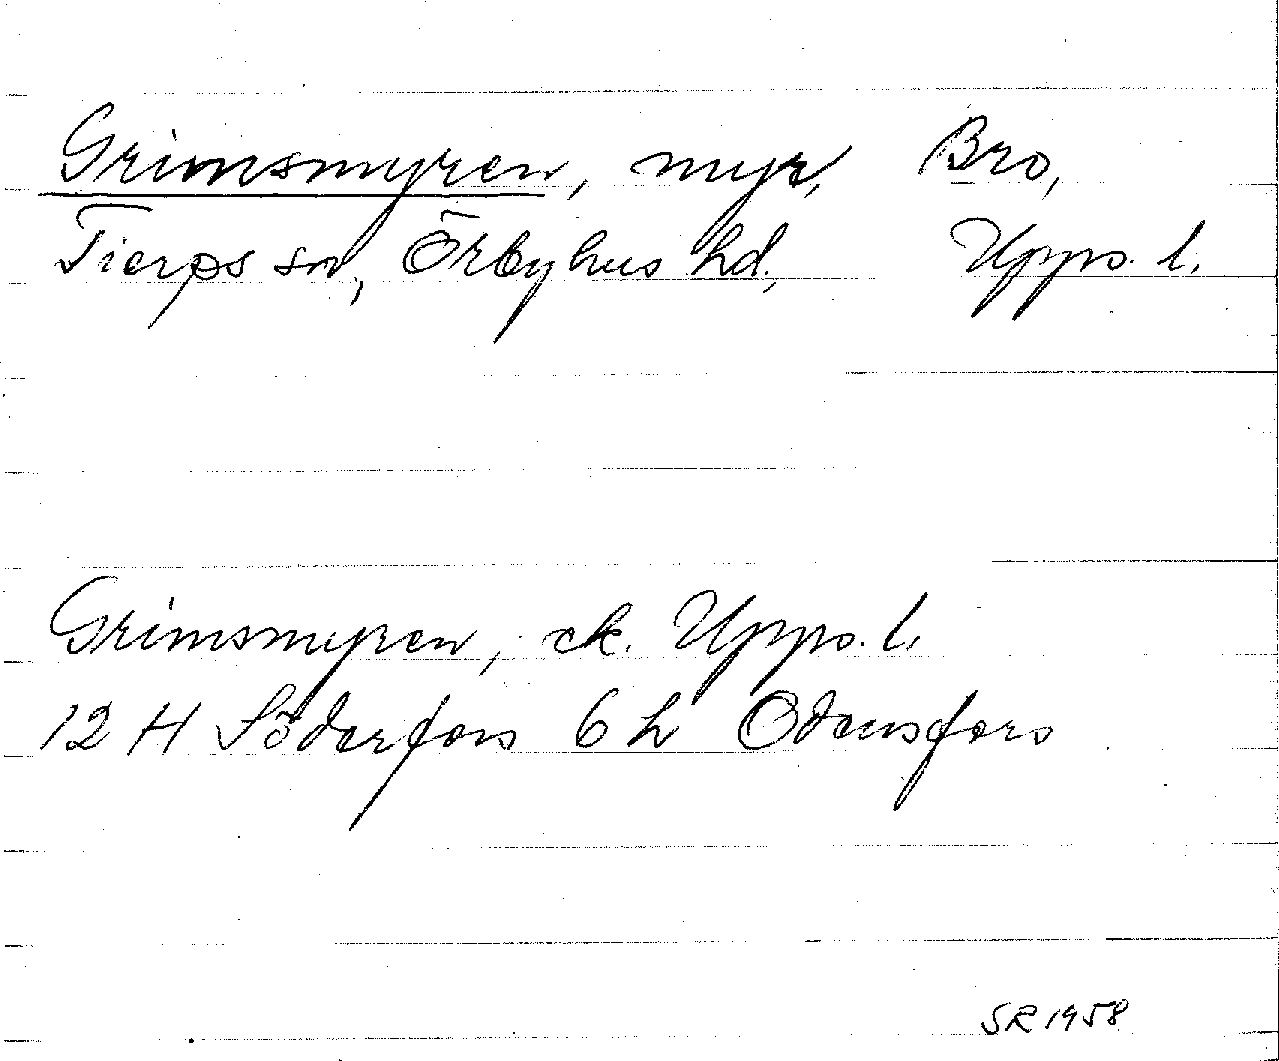 Grimsmyren, myr, Bro,
Tierps sn, Örbyhus hd, Upps. l.
Grimsmyren, ek. Upps. l.
12 H Söderfors 6 h Odensfors
SR 1958